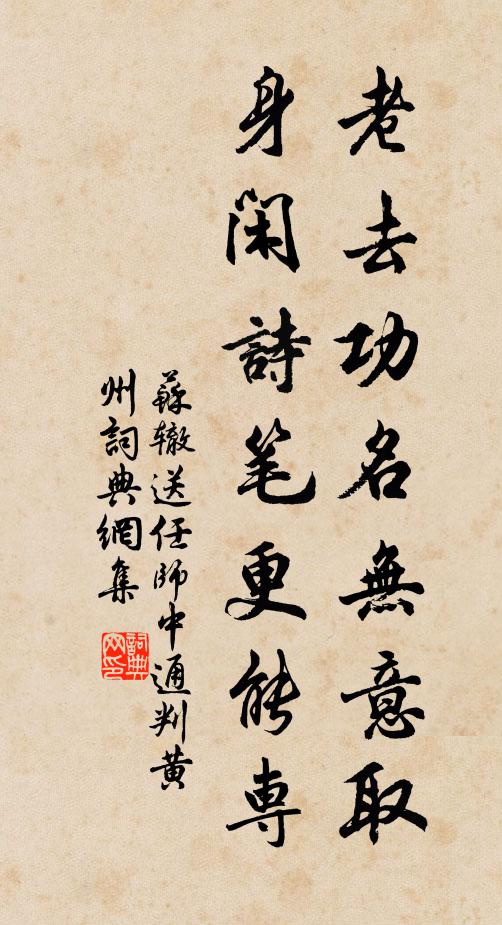 老去功名無意取
身閑詩笔更能専
蘇辙送任師中通判黄
州詞典網集
詞典网印